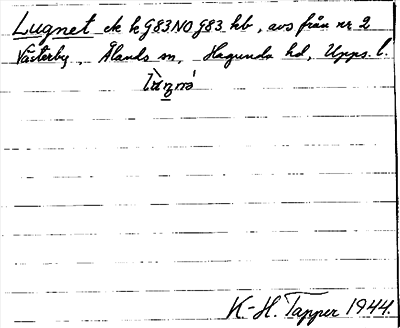 Lugnet ek k G83NO G83 hb, avs från nr 2
Västerby, Ålands sn, Hagunda hd, Upps. l.
K-H. Tapper 1944.